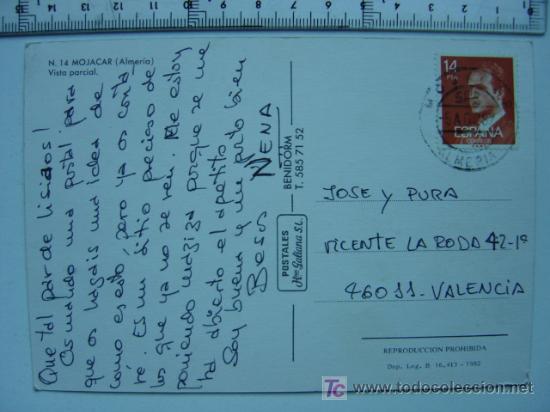 N. 14 MOJACAR (Almería)
Vista parcial.
Que tal par de lisiados!
Os mando una postal para
que os hagais una idea de
cómo es esto, pero ya os conta
ré. Es un sitio precioso de
los que ya no se ven. Me estoy
poniendo maziza porque se me
ha abierto el apetito.
Soy buena y me porto bien
Besos
NENA
POSTALES
Hnos Galiana S.L.
BENIDORM
T. 585 71 52
14
PTA
ESPAÑA
CORREOS
ALMERIA
JOSE Y PURA
VICENTE LA RODA 42-1º
46011-VALENCIA
REPRODUCCION PROHIBIDA
Dep. Leg. B 16.413 - 1982
todocoleccion